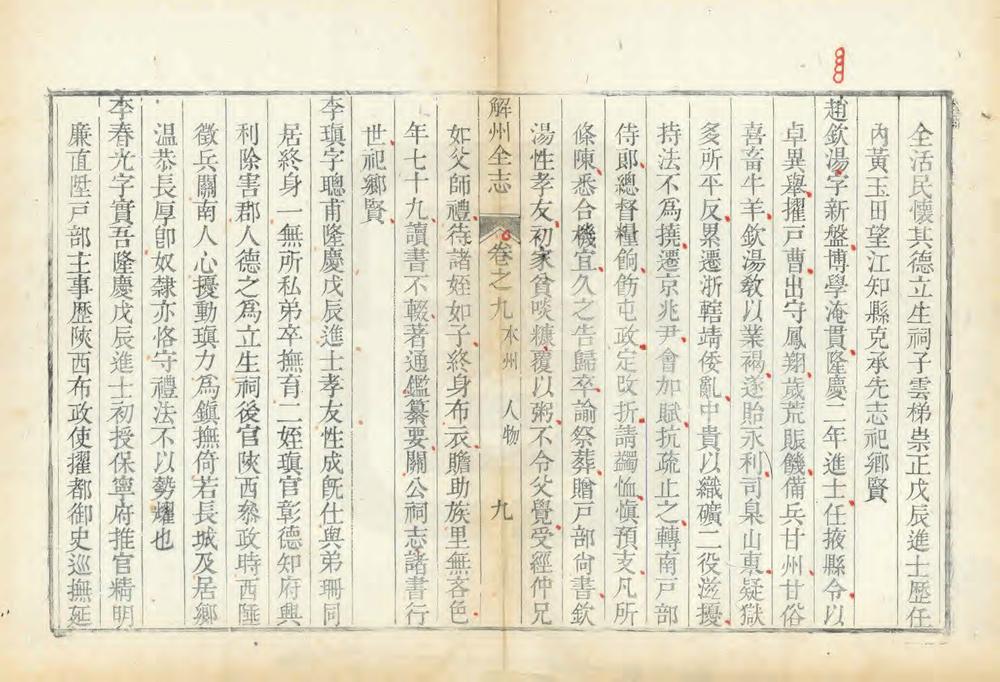 全活民懷其德立生祠子雲梯崇正戊辰進士歷任
內黃玉田望江知縣克承先志祀鄉賢
趙欽湯字新盤博學淹貫隆慶二年進士任掖縣令以
卓異舉擢戸曹出守鳳翔歲荒賑饑備兵甘州甘俗
喜畜牛羊欽湯敎以業褐遂貽永利司臬山東疑獄
多所平反累遷浙轄靖倭亂中貴以織礦二役滋擾
持法不爲撓遷京兆尹會加賦抗疏止之轉南戸部
侍郎總督糧餉飭屯政定改折請蠲恤愼預支凡所
條陳悉合機宜久之告歸卒諭祭葬贈戸部尙書欽
湯性孝友初家貧啖糠覆以粥不令父覺受經仲兄
解州全志 卷之九 本州 人物 九
如父師禮待諸姪如子終身布衣贍助族里無吝色
年七十九讀書不輟著通鑑纂要關公祠志諸書行
世祀鄉賢
李瑱字聰甫隆慶戊辰進士孝友性成旣仕與弟珊同
居終身一無所私弟卒撫育二姪瑱官彰德知府興
利除害郡人德之爲立生祠後官陝西叅政時西陲
徵兵關南人心擾動瑱力爲鎭撫倚若長城及居鄉
温恭長厚卽奴隸亦恪守禮法不以勢燿也
李春光字實吾隆慶戊辰進士初授保寧府推官精明
廉直陞戸部主事歷陝西布政使擢都御史巡撫延